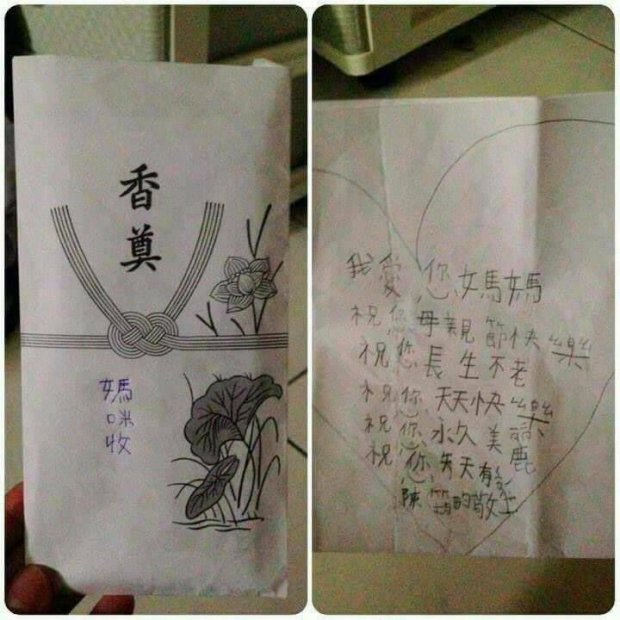 香奠
媽咪收
我愛您媽媽
祝您母親節快樂
祝您長生不老
祝您天天快樂
祝您永久美麗
祝您天天有
陳 的敬上